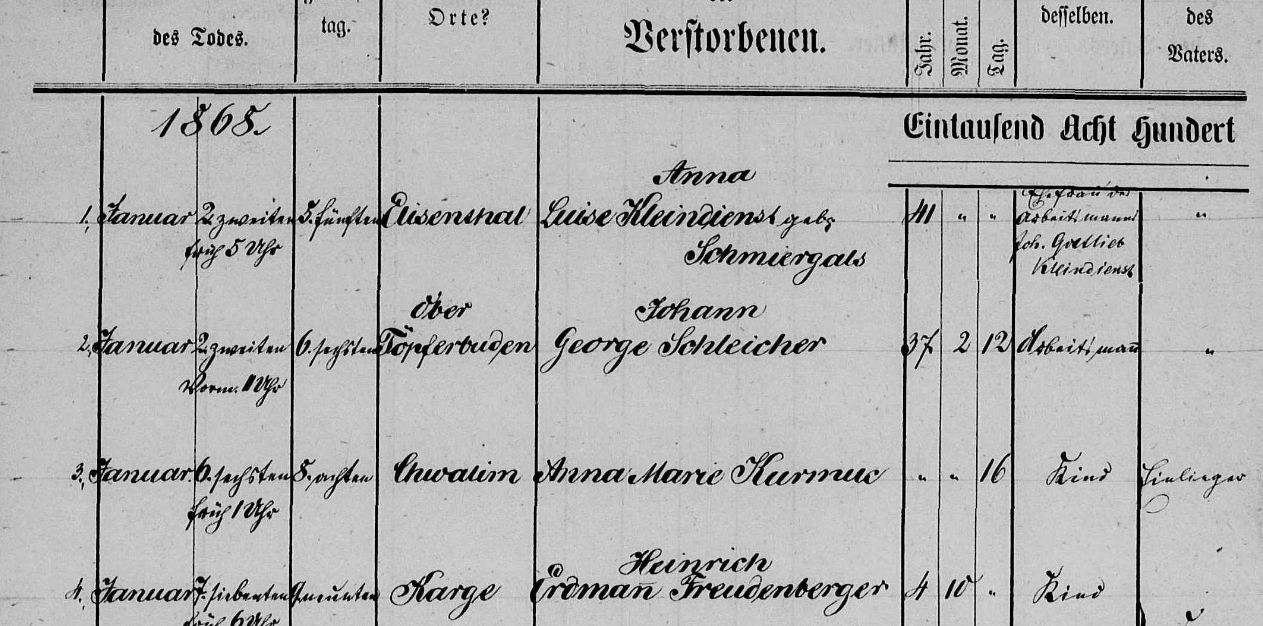 des Todes.
tag.
Orte?
Verstorbenen.
Jahr.
Monat.
Tag.
desselben.
des
Vaters.
1868.
Eintausend Acht Hundert
Anna
1, Januar 2. zweiten 5. fünften Elisenthal Luise Kleindienst geb. 41 " " Ehefrau des Arbeitsmanns "
früh 5 Uhr Schmiergals Joh. Gottlieb
Kleindienst
Ober Johann
2, Januar 2. zweiten 6. sechsten Töpferbuden George Schleicher 37 2 12 Arbeitsmañ "
Vorm. 11 Uhr
3, Januar 6. sechsten 8. achten Chwalim Anna Marie Kurmuc " " 16 Kind Einlieger
früh 1 Uhr
Heinrich
4, Januar 7. siebenten 9. neunten Karge Erdmañ Freudenberger 4 10 " Kind
früh 6 Uhr